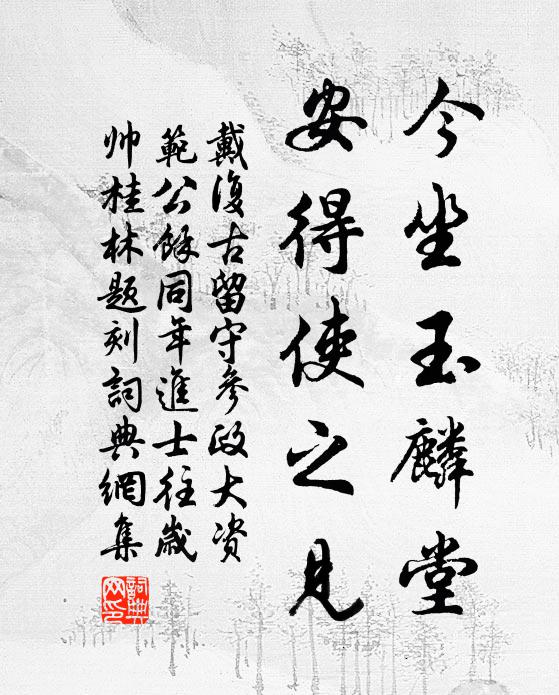 今坐玉麟堂
安得使之見
戴復古留守參政大资
範公餘同年進士往歲
帅桂林题刻詞典網集
詞典